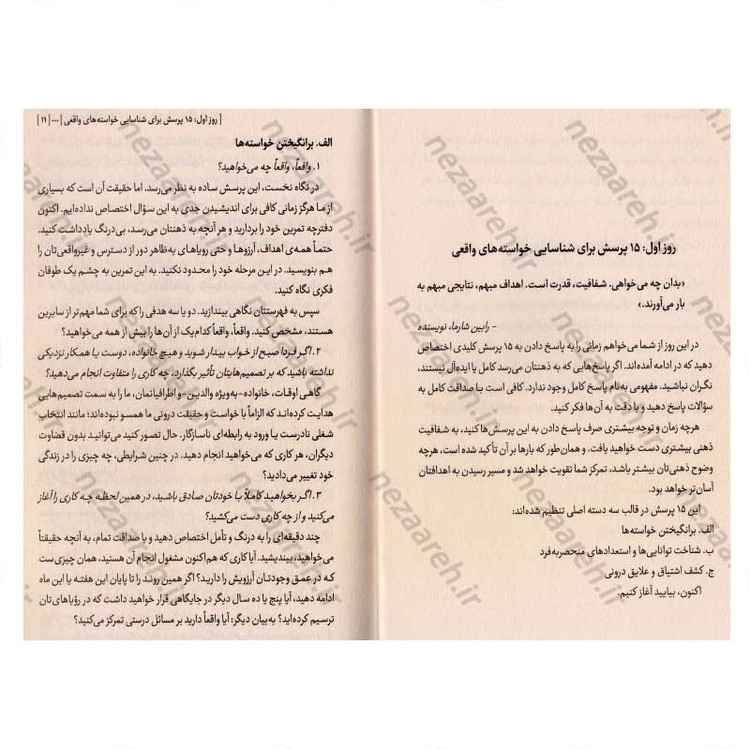 روز اول: ۱۵ پرسش برای شناسایی خواسته‌های واقعی
«بدان چه می‌خواهی. شفافیت، قدرت است. اهداف مبهم، نتایجی مبهم به
بار می‌آورند.»
– رابین شارما، نویسنده
در این روز از شما می‌خواهم زمانی را به پاسخ دادن به ۱۵ پرسش کلیدی اختصاص
دهید که در ادامه آمده‌اند. اگر پاسخ‌هایی که به ذهنتان می‌رسد کامل یا ایده‌آل نیستند،
نگران نباشید. مفهومی به‌نام پاسخ کامل وجود ندارد. کافی است با صداقت کامل به
سؤالات پاسخ دهید و با دقت به آن‌ها فکر کنید.
هرچه زمان و توجه بیشتری صرف پاسخ دادن به این پرسش‌ها کنید، به شفافیت
ذهنی بیشتری دست خواهید یافت. و همان‌طور که بارها بر آن تأکید شده است، هرچه
وضوح ذهنی‌تان بیشتر باشد، تمرکز شما تقویت خواهد شد و مسیر رسیدن به اهدافتان
آسان‌تر خواهد بود.
این ۱۵ پرسش در قالب سه دسته اصلی تنظیم شده‌اند:
الف. برانگیختن خواسته‌ها
ب. شناخت توانایی‌ها و استعدادهای منحصربه‌فرد
ج. کشف اشتیاق و علایق درونی
اکنون، بیایید آغاز کنیم.
[ روز اول: ۱۵ پرسش برای شناسایی خواسته‌های واقعی | ... | ۱۱ ]
الف. برانگیختن خواسته‌ها
۱. واقعاً، واقعاً چه می‌خواهید؟
در نگاه نخست، این پرسش ساده به نظر می‌رسد. اما حقیقت آن است که بسیاری
از ما هرگز زمانی کافی برای اندیشیدن جدی به این سؤال اختصاص نداده‌ایم. اکنون
دفترچه تمرین خود را بردارید و هر آنچه به ذهنتان می‌رسد، بی‌درنگ یادداشت کنید.
حتماً همه‌ی اهداف، آرزوها و حتی رویاهای به‌ظاهر دور از دسترس و غیرواقعی‌تان را
هم بنویسید. در این مرحله خود را محدود نکنید. به این تمرین به چشم یک طوفان
فکری نگاه کنید.
سپس به فهرستتان نگاهی بیندازید. دو یا سه هدفی را که برای شما مهم‌تر از سایرین
هستند، مشخص کنید. واقعاً، واقعاً کدام‌یک از آن‌ها را بیش از همه می‌خواهید؟
۲. اگر فردا صبح از خواب بیدار شوید و هیچ خانواده، دوست یا همکار نزدیکی
نداشته باشید که بر تصمیم‌هایتان تأثیر بگذارد، چه کاری را متفاوت انجام می‌دهید؟
گاهی اوقات، خانواده-به‌ویژه والدین-و اطرافیانمان، ما را به سمت تصمیم‌هایی
هدایت کرده‌اند که الزاماً با خواست و حقیقت درونی ما همسو نبوده‌اند؛ مانند انتخاب
شغلی نادرست یا ورود به رابطه‌ای ناسازگار. حال تصور کنید می‌توانید بدون قضاوت
دیگران، هر کاری که می‌خواهید انجام دهید. در چنین شرایطی، چه چیزی را در زندگی
خود تغییر می‌دادید؟
۳. اگر بخواهید کاملاً با خودتان صادق باشید، در همین لحظه چه کاری را آغاز
می‌کنید و از چه کاری دست می‌کشید؟
چند دقیقه‌ای را به درنگ و تأمل اختصاص دهید و با صداقت تمام، به آنچه حقیقتاً
می‌خواهید، بیندیشید. آیا کاری که هم‌اکنون مشغول انجام آن هستید، همان چیزی‌ست
که در عمق وجودتان آرزویش را دارید؟ اگر همین روند را تا پایان این هفته یا این ماه
ادامه دهید، آیا پنج یا ده سال دیگر در جایگاهی قرار خواهید داشت که در رؤیاهای تان
ترسیم کرده‌اید؟ به‌بیان دیگر: آیا واقعاً دارید بر مسائل درستی تمرکز می‌کنید؟
nezaareh.ir